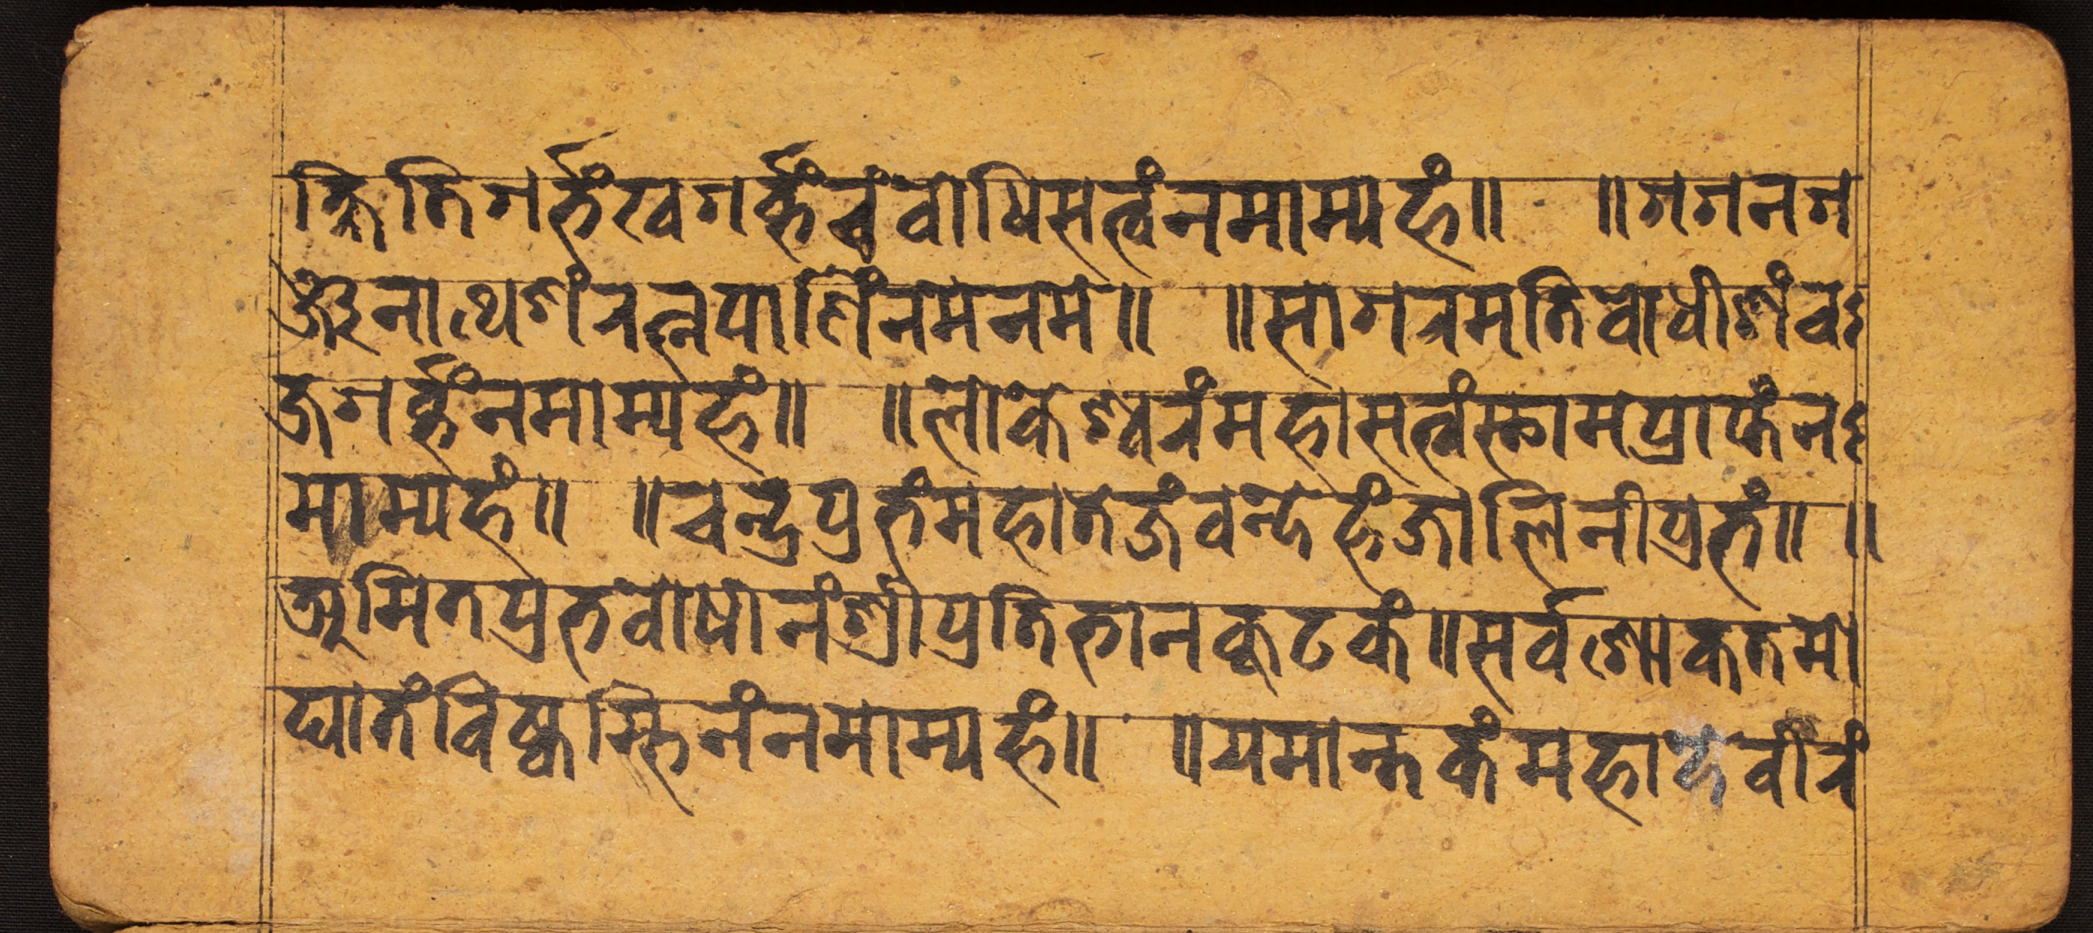 क्षितिगर्भंखगर्भंचंवोधिसत्वंनमाम्यहं॥ ॥गगनग
ञ्जुनाथेशंरत्नपाणिंनमेनमे॥ ॥सागरमतिवोधीशंव
ज्रगर्भंनमाम्यहं॥ ॥लोकेश्वरंमहासत्वंस्थामप्राप्तंन
माम्यहं॥ ॥चन्द्रप्रभंमहातेजंवन्देहंजालिनीप्रभं॥ ॥
अमितप्रभवोधीनंश्रीप्रतिभानकूटकं॥सर्वशोकतमो
घातंविष्कम्भिनंनमाम्यहं॥ ॥यमान्तकंमहावीरं